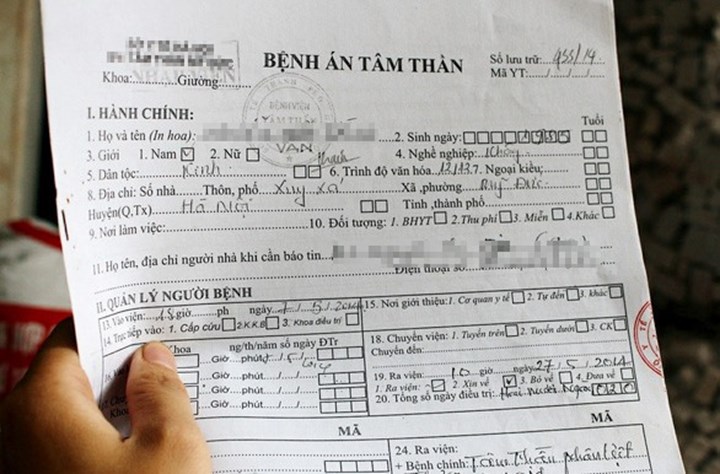 BỆNH ÁN TÂM THẦN
Số lưu trữ: 955/14
Mã YT:..../..../..../....
Khoa:............Giường:............
I. HÀNH CHÍNH:
BỆNH VIỆN
TÂM THẦN
Tuổi
1. Họ và tên (In hoa): 2. Sinh ngày:
3. Giới 1. Nam 2. Nữ 4. Nghề nghiệp:
5. Dân tộc: Kinh 6. Trình độ văn hóa 12/12 7. Ngoại kiều:
8. Địa chỉ: Số nhà........Thôn, phố Xuy Xá Xã ,phường
Huyện(Q,Tx) Hà Nội Tỉnh ,thành phố
9. Nơi làm việc: 10. Đối tượng: 1. BHYT 2.Thu phí 3. Miễn 4.Khác
11. Họ tên, địa chỉ người nhà khi cần báo tin
Điện thoại số
II. QUẢN LÝ NGƯỜI BỆNH
13. Vào viện: 18 giờ......ph ngày 7/5/2014 15. Nơi giới thiệu: 1. Cơ quan y tế 2. Tự đến 3. khác
14. Trực tiếp vào: 1. Cấp cứu 2.K.K.B 3. Khoa điều trị
Khoa ng/th/năm số ngày ĐTr
18. Chuyển viện: 1. Tuyến trên 2. Tuyến dưới 3. CK
Chuyển đến:
Giờ....phút
Giờ....phút..../..../....
Giờ....phút..../..../....
Giờ....phút..../..../....
19. Ra viện: 10 giờ ngày 27/5/2014
1. Ra viện: 2. Xin về 3. Bỏ về 4. Đưa về
20. Tổng số ngày điều trị: Hai mươi ngày 020
MÃ MÃ
24. Ra viện:
+ Bệnh chính: Tâm thần phân liệt